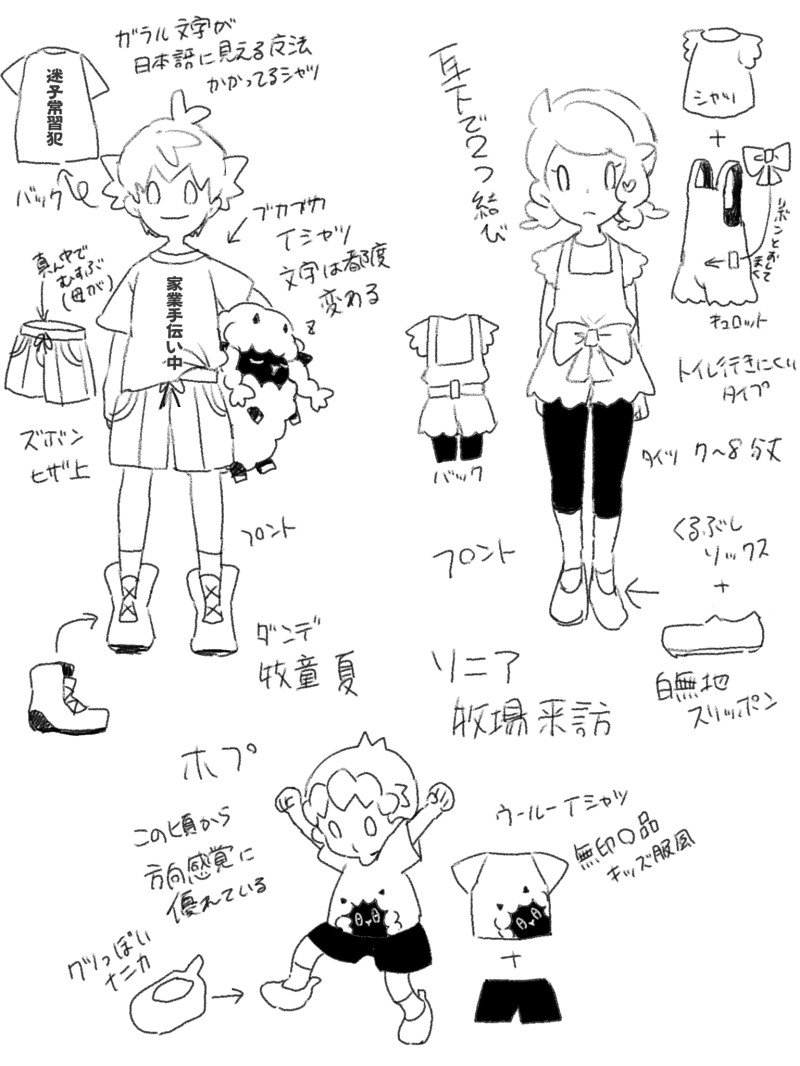 ガラル文字が
日本語に見える魔法
かかってるシャツ
迷子常習犯
バック
ブカブカ
Tシャツ
文字は都度
変える
真ん中で
むすぶ
(母が)
家業手伝い中
z
ズボン
ヒザ上
フロント
ダンデ
牧童 夏
耳下で2つ結び
シャツ
+
リボンとおして
まく
キュロット
トイレ行きにくい
タイプ
バック
タイツ 7〜8分丈
フロント
くるぶし
ソックス
+
白無地
スリッポン
ソニア
牧場来訪
ホプ
この頃から
方向感覚に
優れている
クツっぽい
ナニカ
ウールーTシャツ
無印〇品
キッズ服風
+